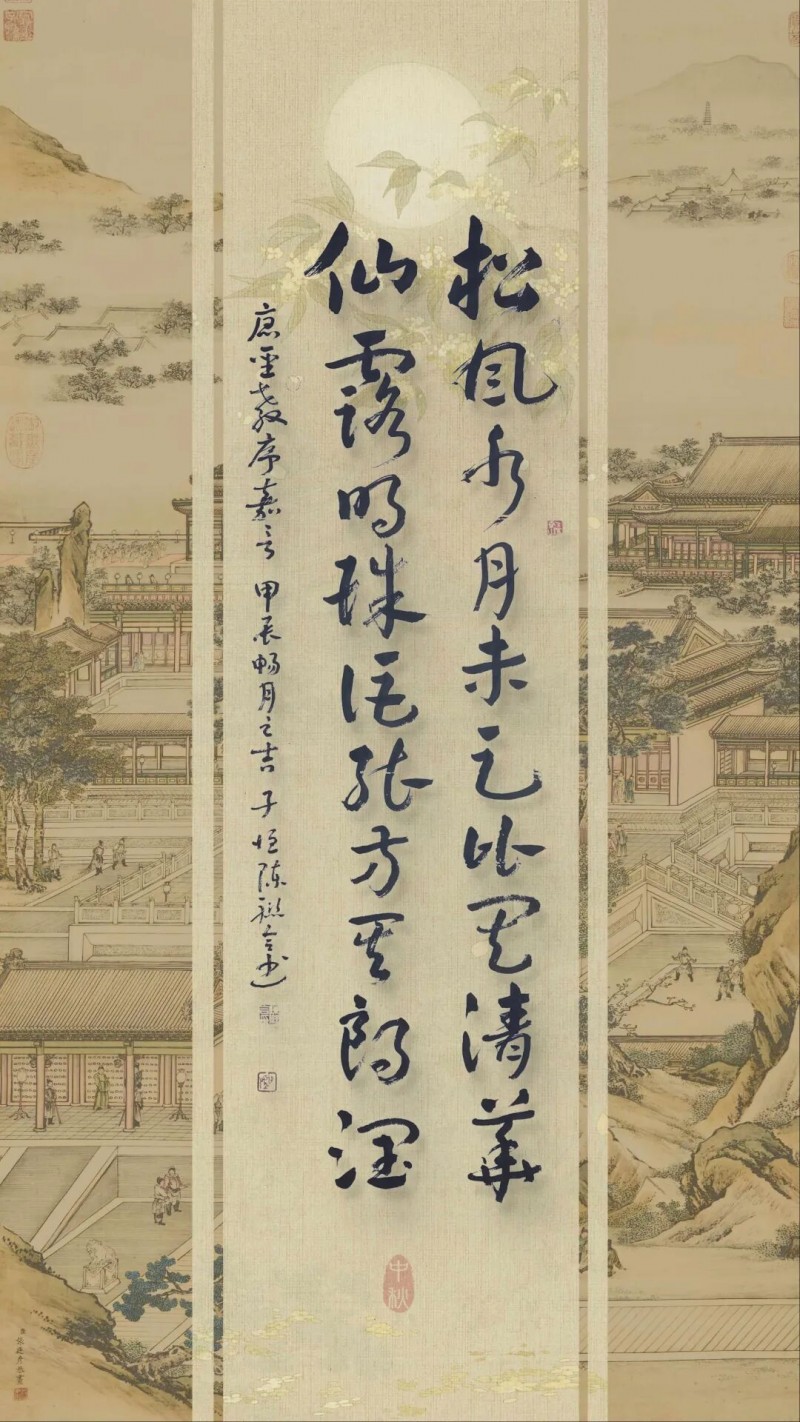 松風水月未足比其清華
仙露明珠詎能方其朗潤
唐聖教序嘉言 甲辰暢月之吉 子恒陳
中秋
臣張廷彥恭畫